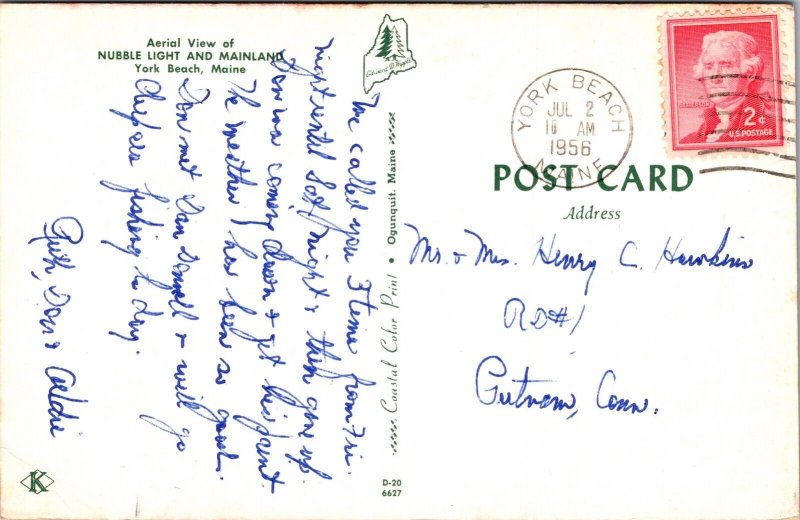 Aerial View of
NUBBLE LIGHT AND MAINLAND
York Beach, Maine
We called you 3 time from Fri.
night until Sat night & then gave up.
Don was coming down & get his pant
The weather has been so good.
Don met Dan & will go
fishing to day.
Ruth, Don &
Coastal Color Print • Ogunquit, Maine
K
D-20
6627
YORK BEACH
JUL 2
10 AM
1956
MAINE
JEFFERSON
2¢
U.S. POSTAGE
POST CARD
Address
Mr. & Mrs. Henry C. Hawkins
RD#1
Putnam, Conn.